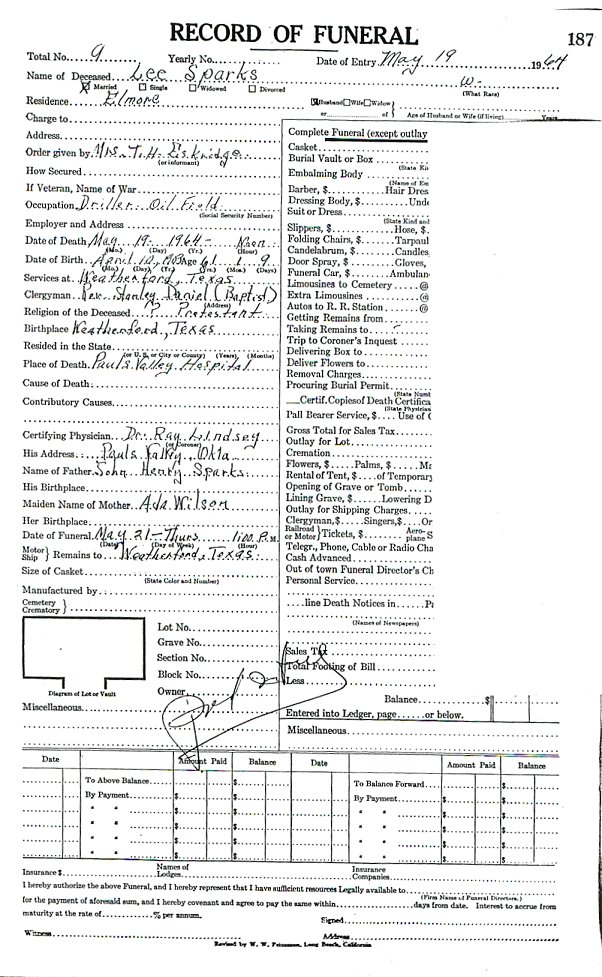 RECORD OF FUNERAL
187
Total No. 9 Yearly No. Date of Entry May 19 1964
Name of Deceased Lee Sparks W-
Married Single Widowed Divorced (What Race)
Residence Elmore Husband Wife Widow
or of Age of Husband or Wife (if living) Years
Charge to
Address
Order given by Mrs. T. H. Eskridge
(or informant)
How Secured
If Veteran, Name of War
Occupation Driller Oil Field
(Social Security Number)
Employer and Address
Date of Death May 19 1964 - Noon
(Mo.) (Day) (Yr.) (Hour)
Date of Birth April 10, 1903 Age 61 1 9
(Mo.) (Day) (Yr.) (Yrs.) (Mos.) (Days)
Services at Weatherford, Texas
Clergyman Rev. Stanley Daniel (Baptist)
(Address)
Religion of the Deceased ? Protestant
Birthplace Weatherford, Texas
Resided in the State
(or U. S., or City or County) (Years), (Months)
Place of Death Pauls Valley Hospital
Cause of Death:
Contributory Causes
Certifying Physician Dr. Ray Lindsey
(or Coroner)
His Address Pauls Valley Okla
Name of Father John Henry Sparks
His Birthplace
Maiden Name of Mother Ada Wilson
Her Birthplace
Date of Funeral May 21 - Thurs 1:00 P.M.
(Date) (Day of Week) (Hour)
Motor Ship Remains to Weatherford, Texas
Size of Casket
(State Color and Number)
Manufactured by
Cemetery
Crematory
Lot No.
Grave No.
Section No.
Block No.
Owner
Diagram of Lot or Vault
Miscellaneous
Complete Funeral (except outlay
Casket
Burial Vault or Box
(State Ki
Embalming Body
(Name of Em
Barber, $ Hair Dres
Dressing Body, Und
Suit or Dress
(State Kind and
Slippers, $ Hose, $
Folding Chairs, $ Tarpaul
Candelabrum, $ Candles
Door Spray, $ Gloves,
Funeral Car, $ Ambulan
Limousines to Cemetery @
Extra Limousines @
Autos to R. R. Station @
Getting Remains from
Taking Remains to
Trip to Coroner's Inquest
Delivering Box to
Deliver Flowers to
Removal Charges
Procuring Burial Permit
(State Numb
Certif. Copies of Death Certifica
(State Physician
Pall Bearer Service, $ Use of
Gross Total for Sales Tax
Outlay for Lot
Cremation
Flowers, $ Palms, $ Ma
Rental of Tent, $ of Temporary
Opening of Grave or Tomb
Lining Grave, $ Lowering D
Outlay for Shipping Charges
Clergyman, $ Singers, $ Or
Railroad or Motor Tickets, $ Aeroplane S
Telegr., Phone, Cable or Radio Cha
Cash Advanced
Out of town Funeral Director's Ch
Personal Service
line Death Notices in Pa
(Names of Newspapers)
Sales Tax
Total Footing of Bill
Less
Balance $
Entered into Ledger, page or below.
Miscellaneous
Date Amount Paid Balance Date Amount Paid Balance
To Above Balance $ To Balance Forward
By Payment $ By Payment $
" " $ " " $
" " $ " " $
" " $ " " $
" " $ " " $
Insurance $ Names of Lodges Insurance Companies
I hereby authorize the above Funeral, and I hereby represent that I have sufficient resources Legally available to
(Firm Name of Funeral Directors.)
for the payment of aforesaid sum, and I hereby covenant and agree to pay the same within days from date. Interest to accrue from
maturity at the rate of % per annum. Signed
Witness Address
Revised by W. W. Long Beach, California